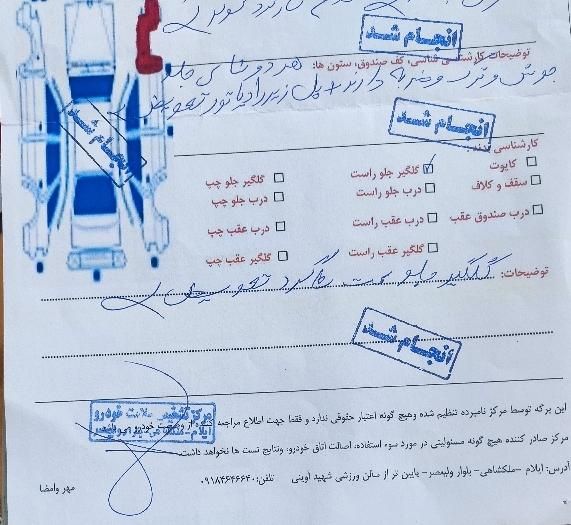 انجام شد
توضیحات کارشناسی شاسی، کف صندوق، ستون ها: هر دو شاسی جلو
جوش و ترک و ضربه دارند + پل زیر رادیاتور تعویض
انجام شد
انجام شد
کارشناسی بدنه:
کاپوت گلگیر جلو راست گلگیر جلو چپ
سقف و کلاف درب جلو راست درب جلو چپ
درب صندوق عقب درب عقب راست درب عقب چپ
گلگیر عقب راست گلگیر عقب چپ
توضیحات: گلگیر جلو سمت شاگرد تعویض
انجام شد
مرکز تخصصی سلامت خودرو
این برگه توسط مرکز نامبرده تنظیم شده وهیچ گونه اعتبار حقوقی ندارد و فقط جهت اطلاع مراجعه کننده از وضعیت خودرو می باشد.
مرکز صادر کننده هیچ گونه مسئولیتی در مورد سوء استفاده، اصالت اتاق خودرو، ونتایج تست ها نخواهد داشت.
آدرس: ایلام -ملکشاهی- بلوار ولیعصر- پایین تر از سالن ورزشی شهید آوینی تلفن: ۰۹۱۸۴۶۴۶۶۴۰
مهر وامضا